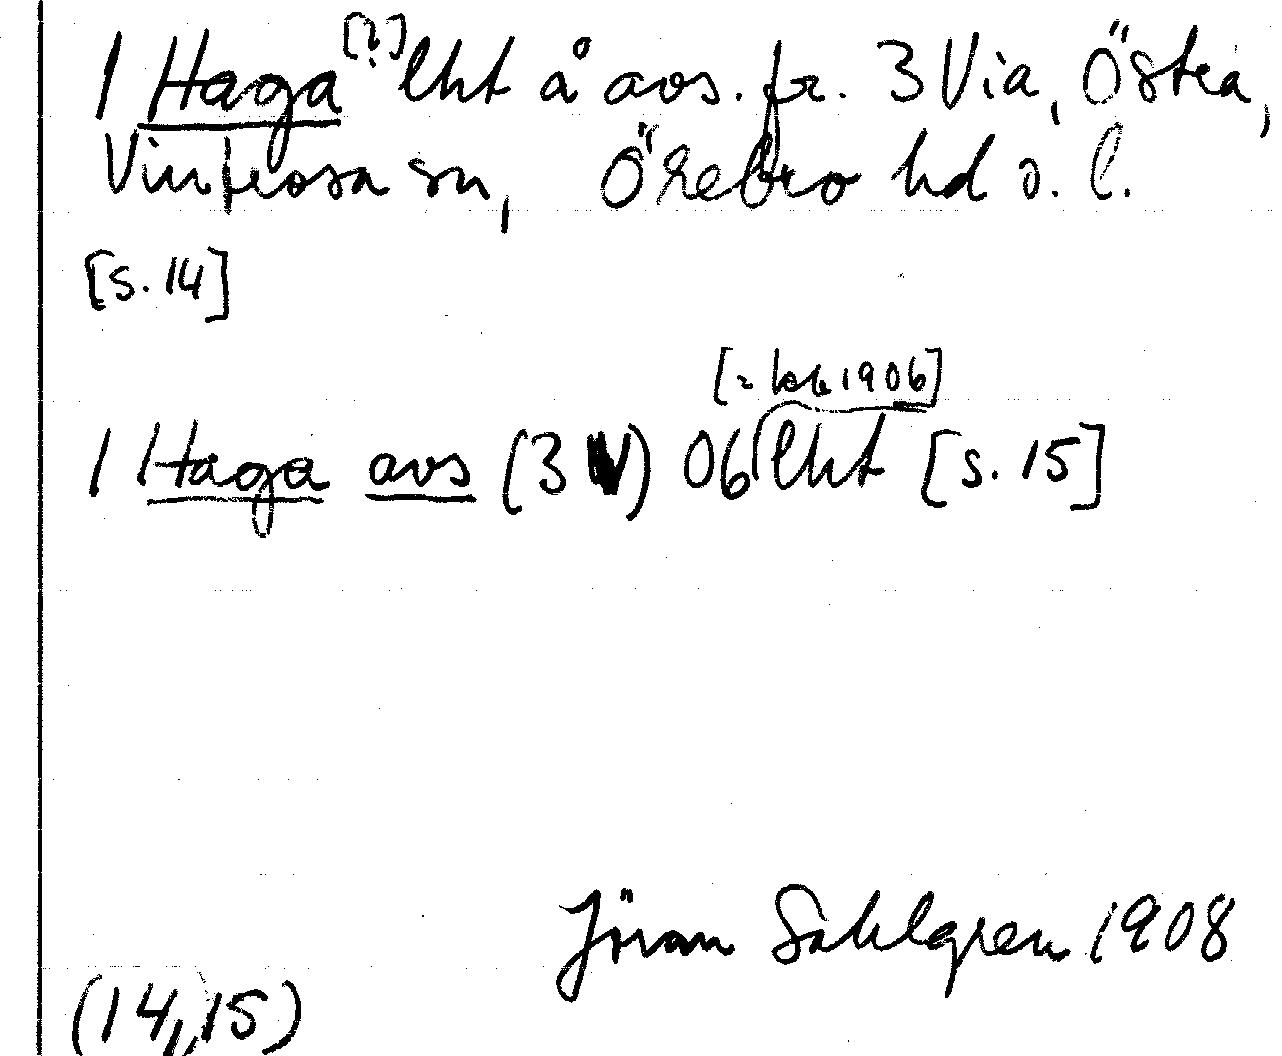 1 Haga [?] lht å avs. fr. 3 Via, Östra,
Vintrosa sn, Örebro hd o. l.
[s. 14]
[= lok 1906]
1 Haga avs (3 V) 06 lht [s. 15]
Jöran Sahlgren 1908
(14, 15)